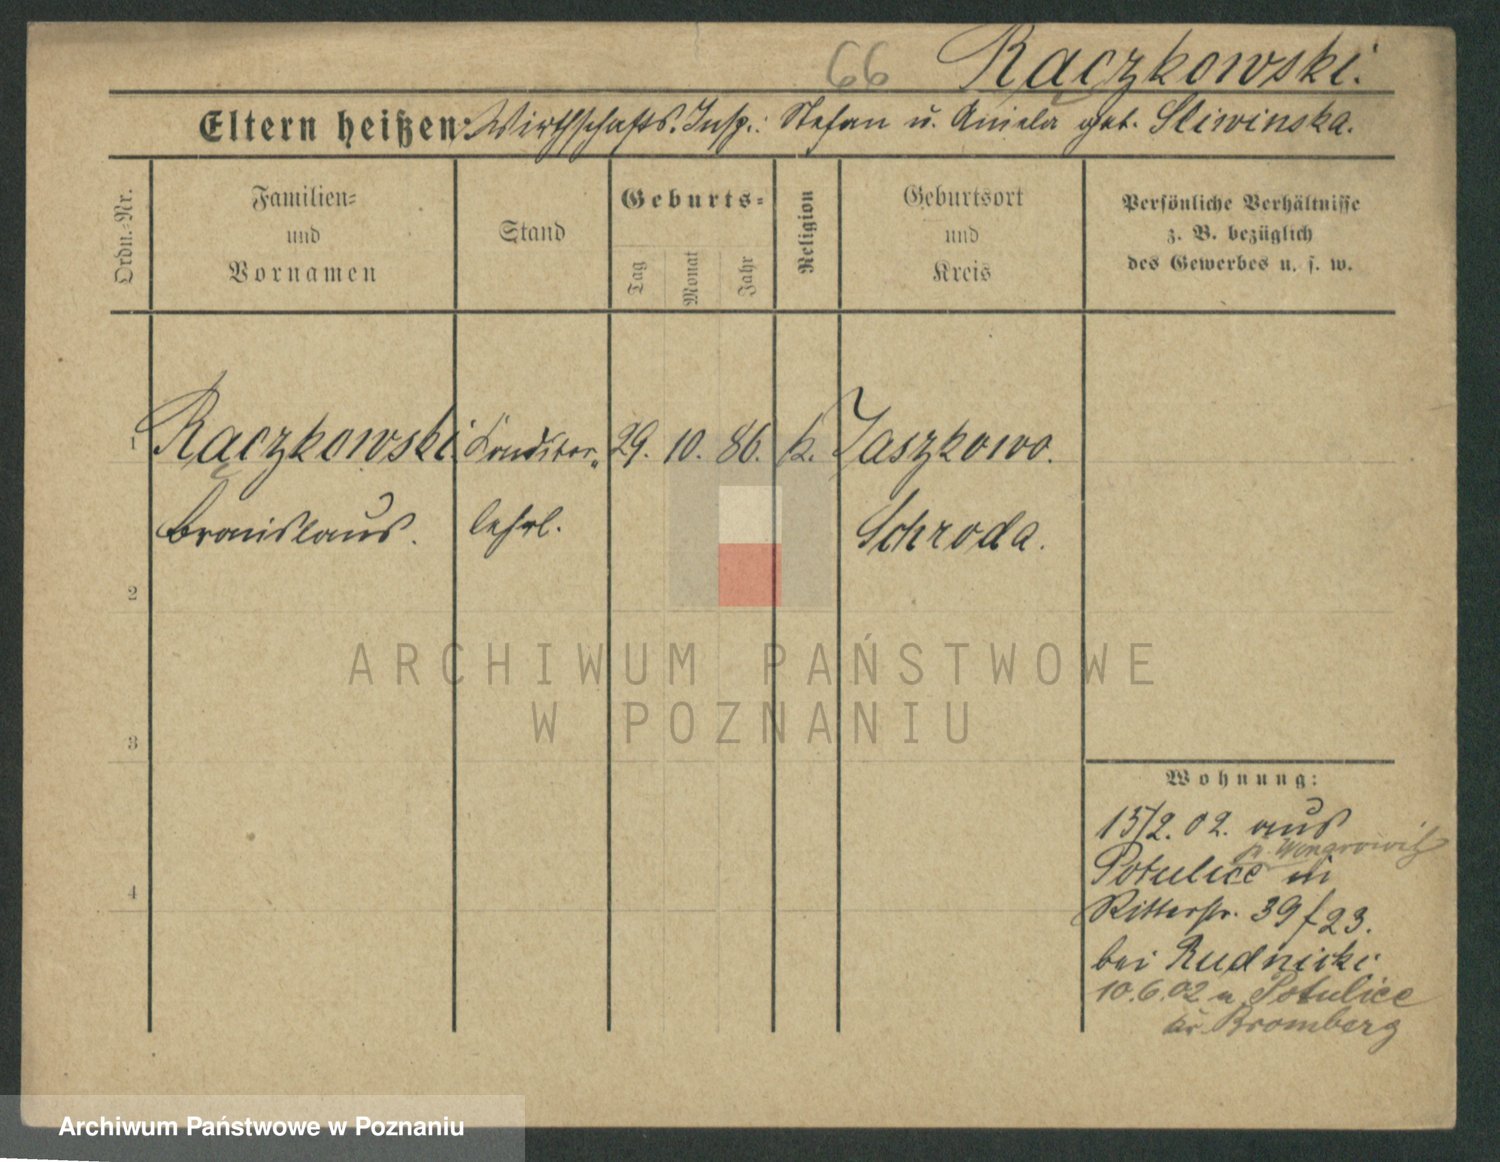 66 Rączkowski.
Eltern heißen: Wirthschafts. Insp.: Stefan u. Aniela geb. Sliwinska.
Ordn.-Nr.
Familien-
und
Vornamen
Stand
Geburts-
Tag
Monat
Jahr
Religion
Geburtsort
und
Kreis
Persönliche Verhältnisse
z. B. bezüglich
des Gewerbes u. s. w.
1 Rączkowski. Konditor- 29. 10. 86. k. Jaszkowo.
Bronislaus. lehrl. Schroda.
2
ARCHIWUM PAŃSTWOWE
W POZNANIU
3
Wohnung:
15/2. 02. aus
Kr. Wongrowitz
Potulice in
4
Ritterstr. 39 f 23.
bei Rudnicki
10.6.02 n. Potulice
Kr. Bromberg
Archiwum Państwowe w Poznaniu